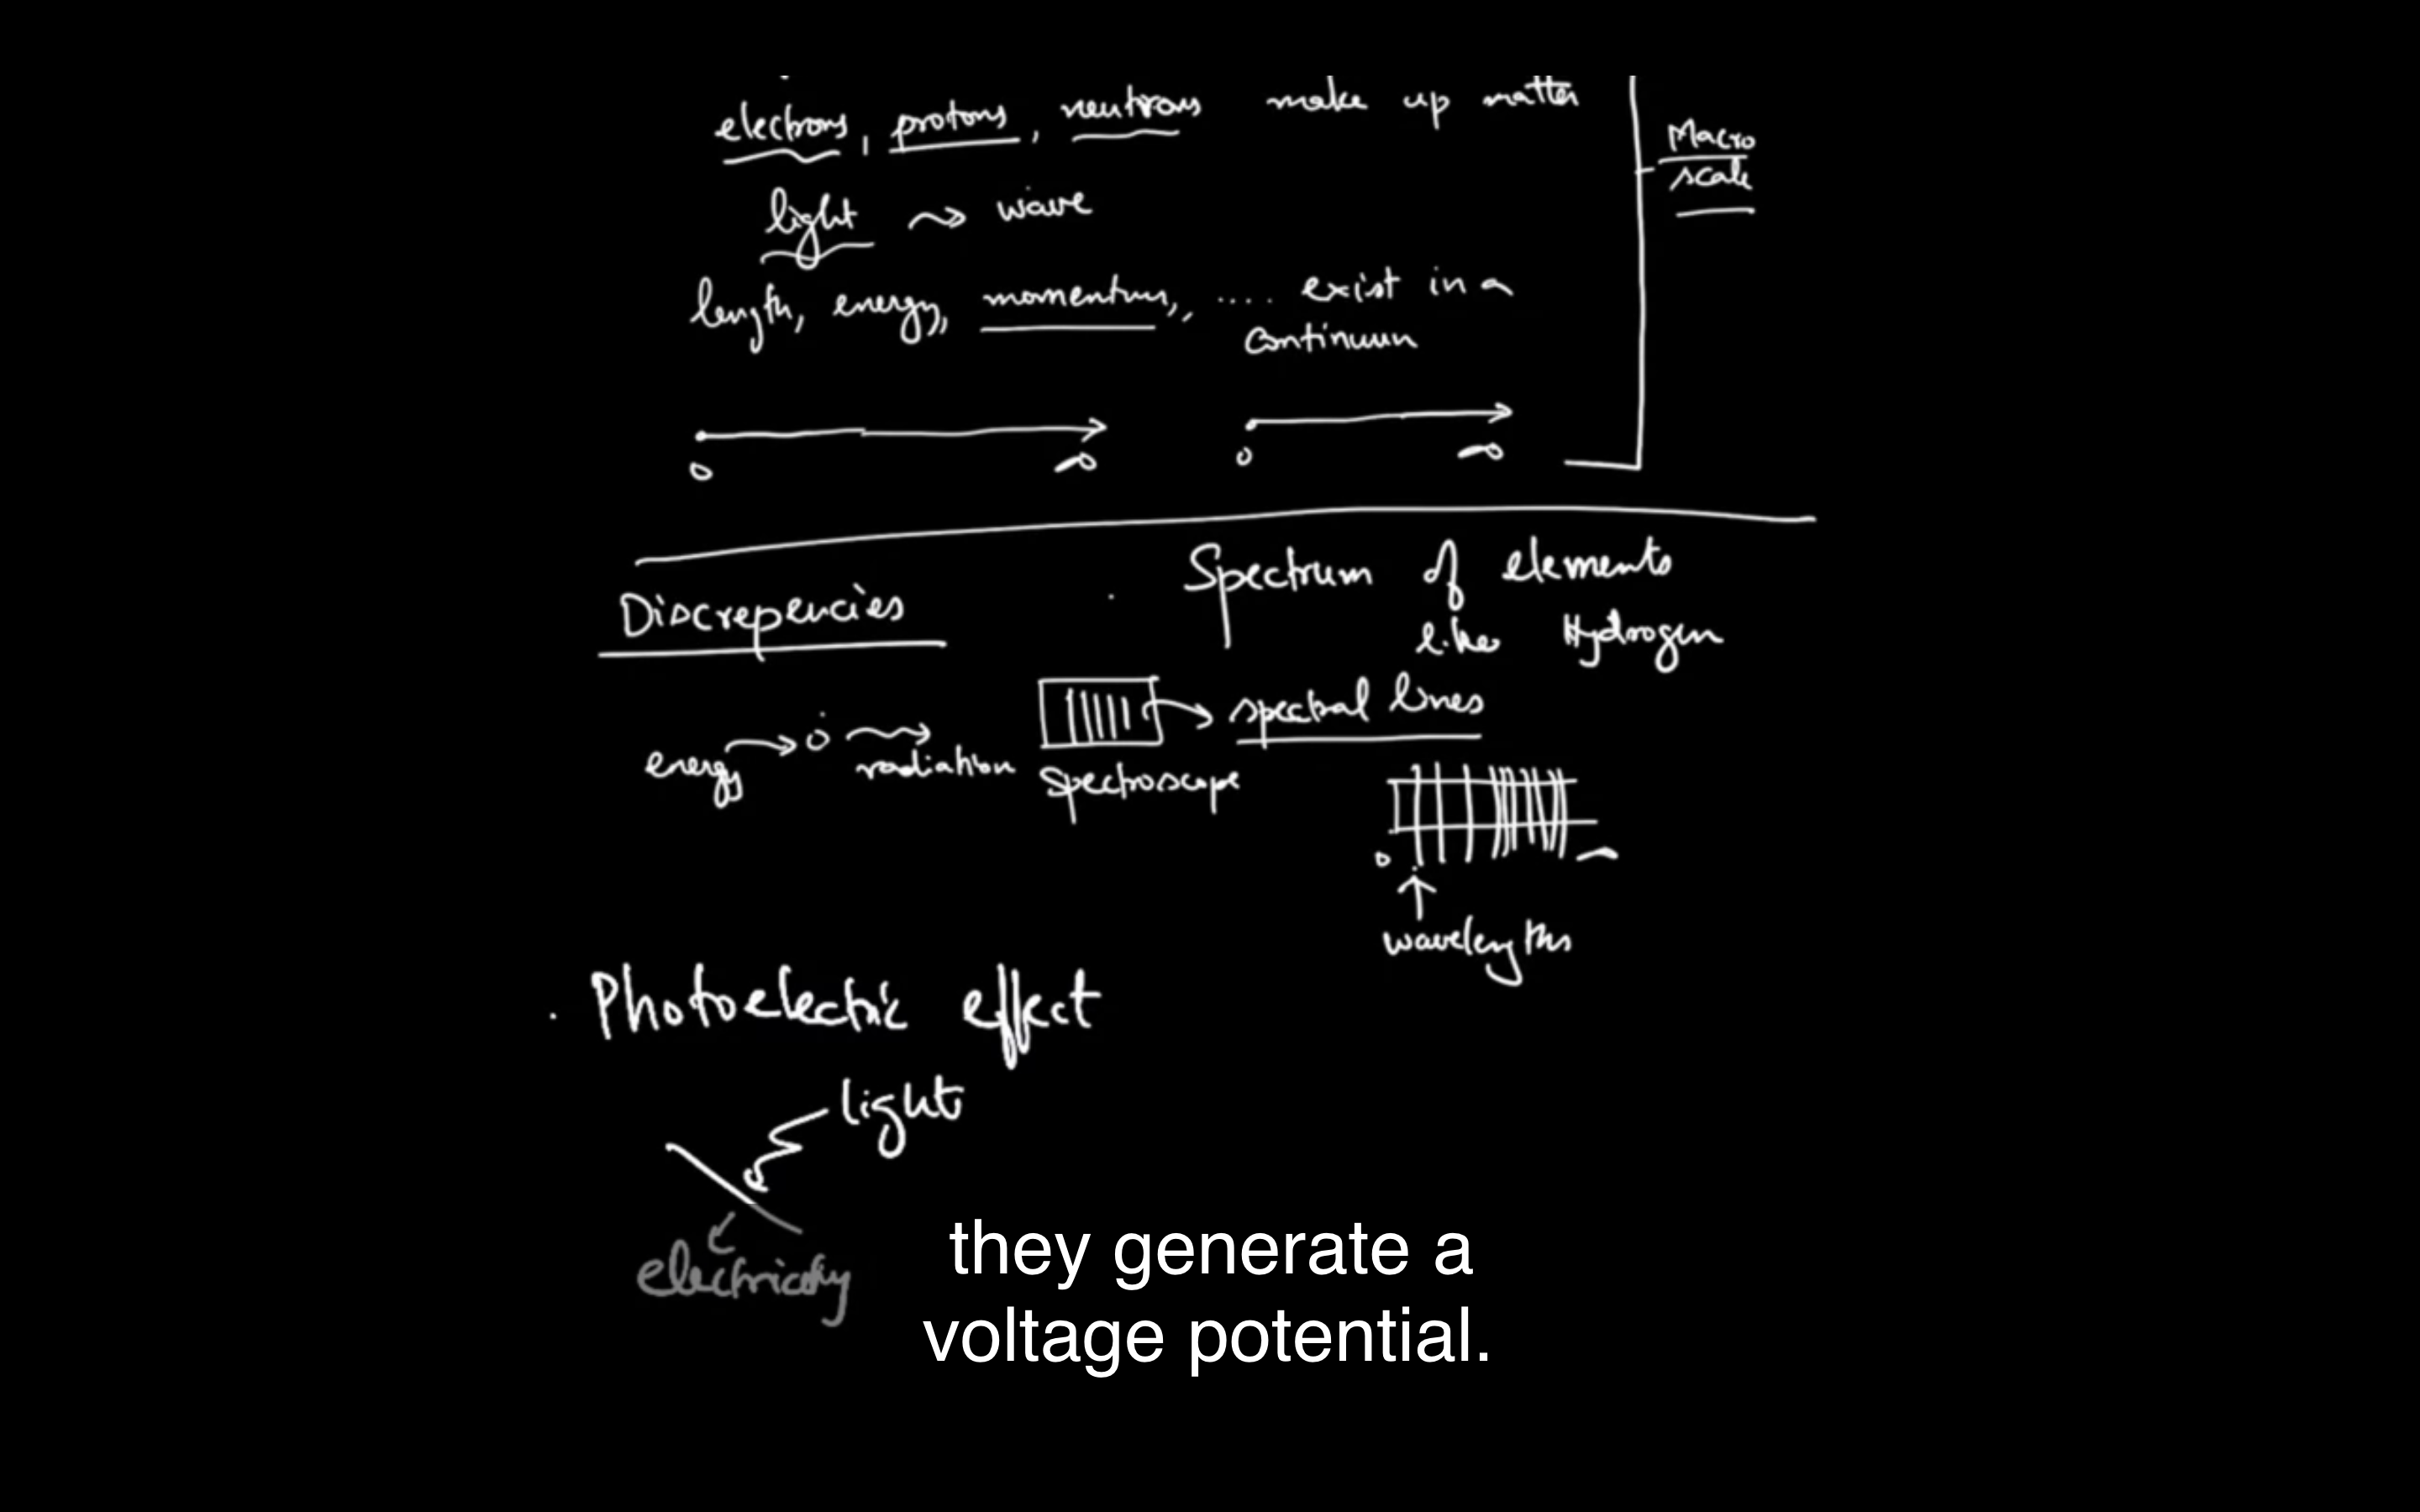 electrons, protons, neutrons make up matter
Macro
scale
light wave
length, energy, momentum, .... exist in a
continuum
0 ∞ 0 ∞
Discrepencies
· Spectrum of elements
like Hydrogen
energy radiation
spectral lines
Spectroscope
0 ∞
wavelengths
· Photoelectric effect
light
electricity
they generate a
voltage potential.